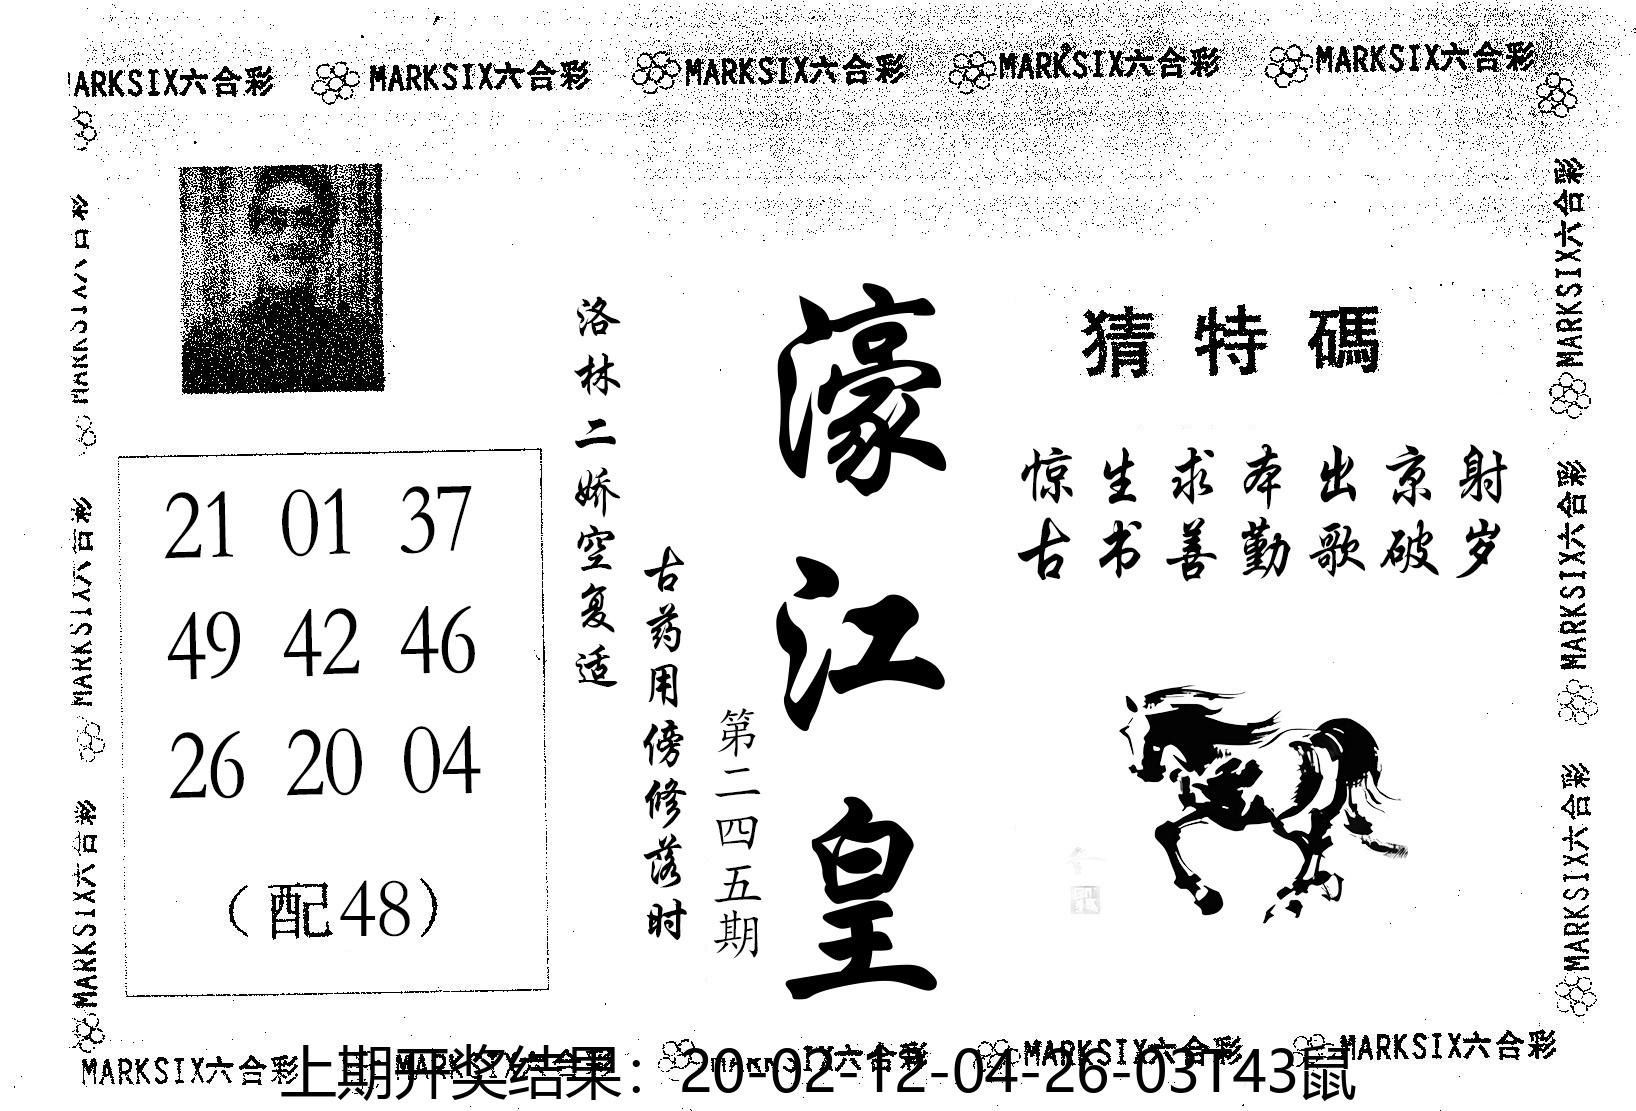 MARKSIX六合彩 MARKSIX六合彩 MARKSIX六合彩 MARKSIX六合彩 MARKSIX六合彩
猜特碼
惊生求本出京射
古书善勤歌破岁
濠江皇
第二四五期
古药用傍修落时
洛林二娇空复适
21 01 37
49 42 46
26 20 04
（配48）
MARKSIX六合彩
MARKSIX六合彩
MARKSIX六合彩
MARKSIX六合彩
MARKSIX六合彩
MARKSIX六合彩
MARKSIX六合彩 MARKSIX六合彩 MARKSIX六合彩 MARKSIX六合彩 MARKSIX六合彩
上期开奖结果：20-02-12-04-26-03T43鼠